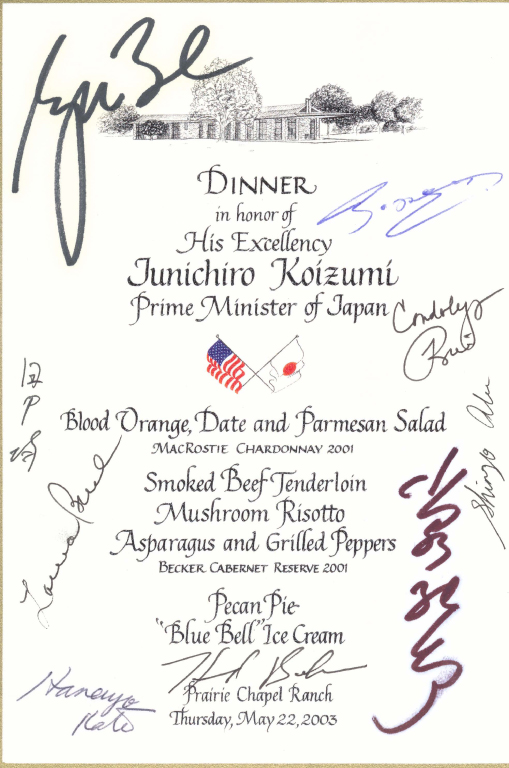 DINNER
in honor of
His Excellency
Junichiro Koizumi
Prime Minister of Japan
Condoleezza
Rice
Blood Orange, Date and Parmesan Salad
MACROSTIE CHARDONNAY 2001
Shinzo Abe
Smoked Beef Tenderloin
Mushroom Risotto
Asparagus and Grilled Peppers
BECKER CABERNET RESERVE 2001
Laura Bush
Pecan Pie
"Blue Bell" Ice Cream
Prairie Chapel Ranch
Thursday, May 22, 2003
Hanayo
Kato